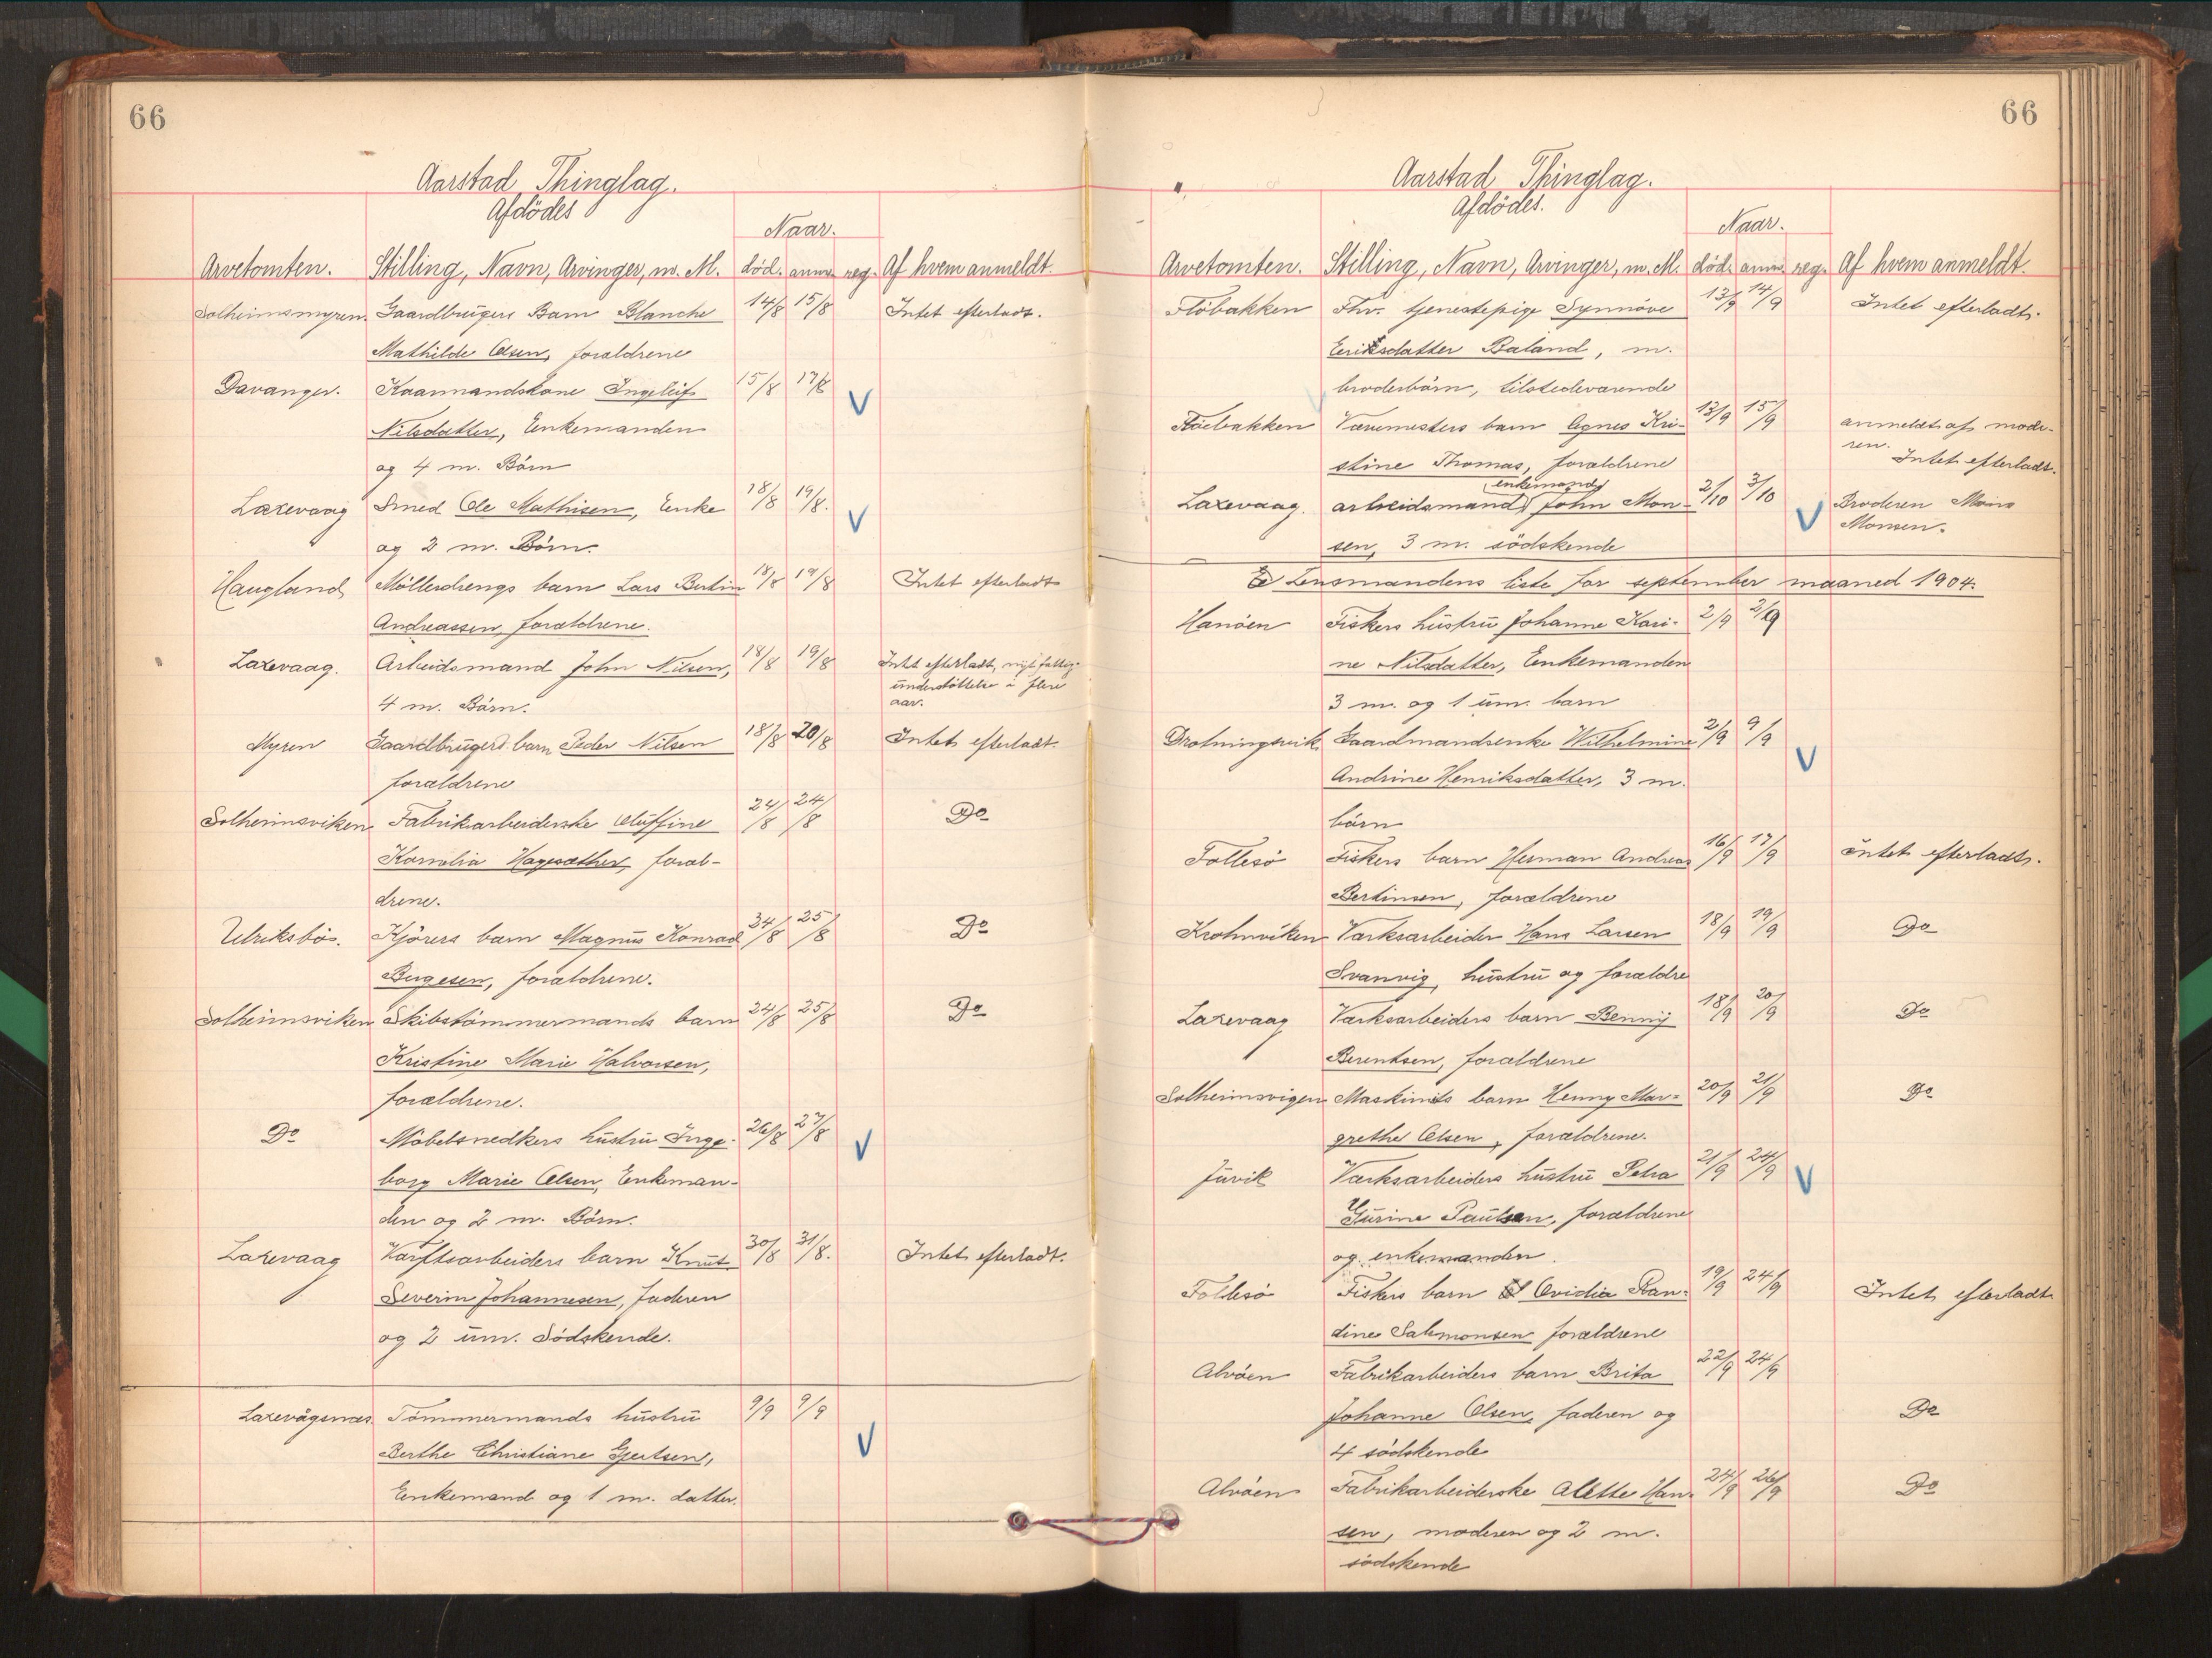 66
Aarstad Thinglag.
Afdödes
Naar.
Arvetomten. Stilling, Navn, Arvinger, m. M. död. anm. reg. Af hvem anmeldt.
Solheimsmyren. Gaardbrugers Barn Blanche 14/8 15/8 Intet efterladt.
Mathilde Olsen, forældrene
Davanger. Kaarmandskone Ingeleif 15/8 17/8 V
Nilsdatter, Enkemanden
og 4 m. Börn
Laxevaag Smed Ole Mathisen, Enke 18/8 19/8. V
og 2 m. Börn.
Haugland Möllerdrengs barn Lars Bertin 18/8 19/8 Intet efterladt
Andreassen, forældrene.
Laxevaag. Arbeidsmand John Nilsen, 18/8 19/8 Intet efterladt, nyt fattig-
understöttelse i flere
aar.
4 m. Börn.
Myren Gaardbrugers barn Peder Nilsen 18/8 20/8 Intet efterladt.
forældrene
Solheimsviken Fabrikarbeiderske Oluffine 24/8 24/8 Do
Kornelia Hagesæther, foræl-
drene.
Ulriksbö. Kjörers barn Magnus Konrad 24/8 25/8 Do
Birgesen, forældrene.
Solheimsviken Skibstömmermands barn 24/8 25/8 Do
Kristine Marie Halvorsen,
forældrene.
Do Möbelsnedkers hustru Inge- 26/8 27/8 V
borg Marie Olsen, Enkeman-
den og 2 m. Börn.
Laxevaag Værftsarbeiders barn Knut 30/8 31/8. Intet efterladt.
Severin Johannesen, Faderen
og 2 um. Södskende.
Laxevågsnæs Tömmermands hustru 9/9 9/9 V
Berthe Christiane Gjertsen,
Enkemand og 1 m. datter.
66
Aarstad Thinglag.
Afdödes.
Naar.
Arvetomten. Stilling, Navn, Arvinger, m. M. död. anm. reg. Af hvem anmeldt.
Flöbakken Fhv. tjenestepige Synnöve 13/9 14/9 Intet efterladt.
Eeriksdatter Baland, m.
broderbörn, tilstedeværende
Flöebakken Værumesters barn Agnes Kri- 13/9 15/9 anmeldt af mode-
ren.
Intet efterladt.
stine Thomas, forældrene
enkemand
Laxevaag. arbeidsmand John Mon- 2/10 3/10 V Broderen Mons
Monsen.
sen, 3 m. södskende
Lensmandens liste for september maaned 1904.
Hanöen Fiskers hustru Johanne Kari- 2/9 2/9
ne Nilsdatter, Enkemanden
3 m. og 1 um. barn
Drotningsvik Gaardmandsenke Wilhelmine 2/9 9/9 V
Andrine Henriksdatter, 3 m.
börn
Follesö Fiskers barn Herman Andreas 16/9 17/9 intet efterladt.
Bertinsen, forældrene
Krohnviken Værksarbeider Hans Larsen 18/9 19/9 Do
Svanvig, hustru og forældre
Laxevaag Værksarbeiders barn Benny 18/9 20/9 Do
Berentsen, forældrene
Solheimsvigen Maskinists barn Henny Mar- 20/9 21/9 Do
grethe Olsen, forældrene.
Juvik Værksarbeiders hustru Petra 21/9 24/9 V
Gurine Paulsen, forældrene
og enkemanden
Follesö Fiskers barn Ovidia Ran- 19/9 24/9 Intet efterladt
dine Salemonsen forældrene
Alvöen Fabrikarbeiders barn Brita 22/9 24/9
Johanne Olsen, faderen og Do
4 södskende
Alvöen Fabrikarbeiderske Alette Han- 24/9 26/9 Do
sen, moderen og 2 m.
södskende